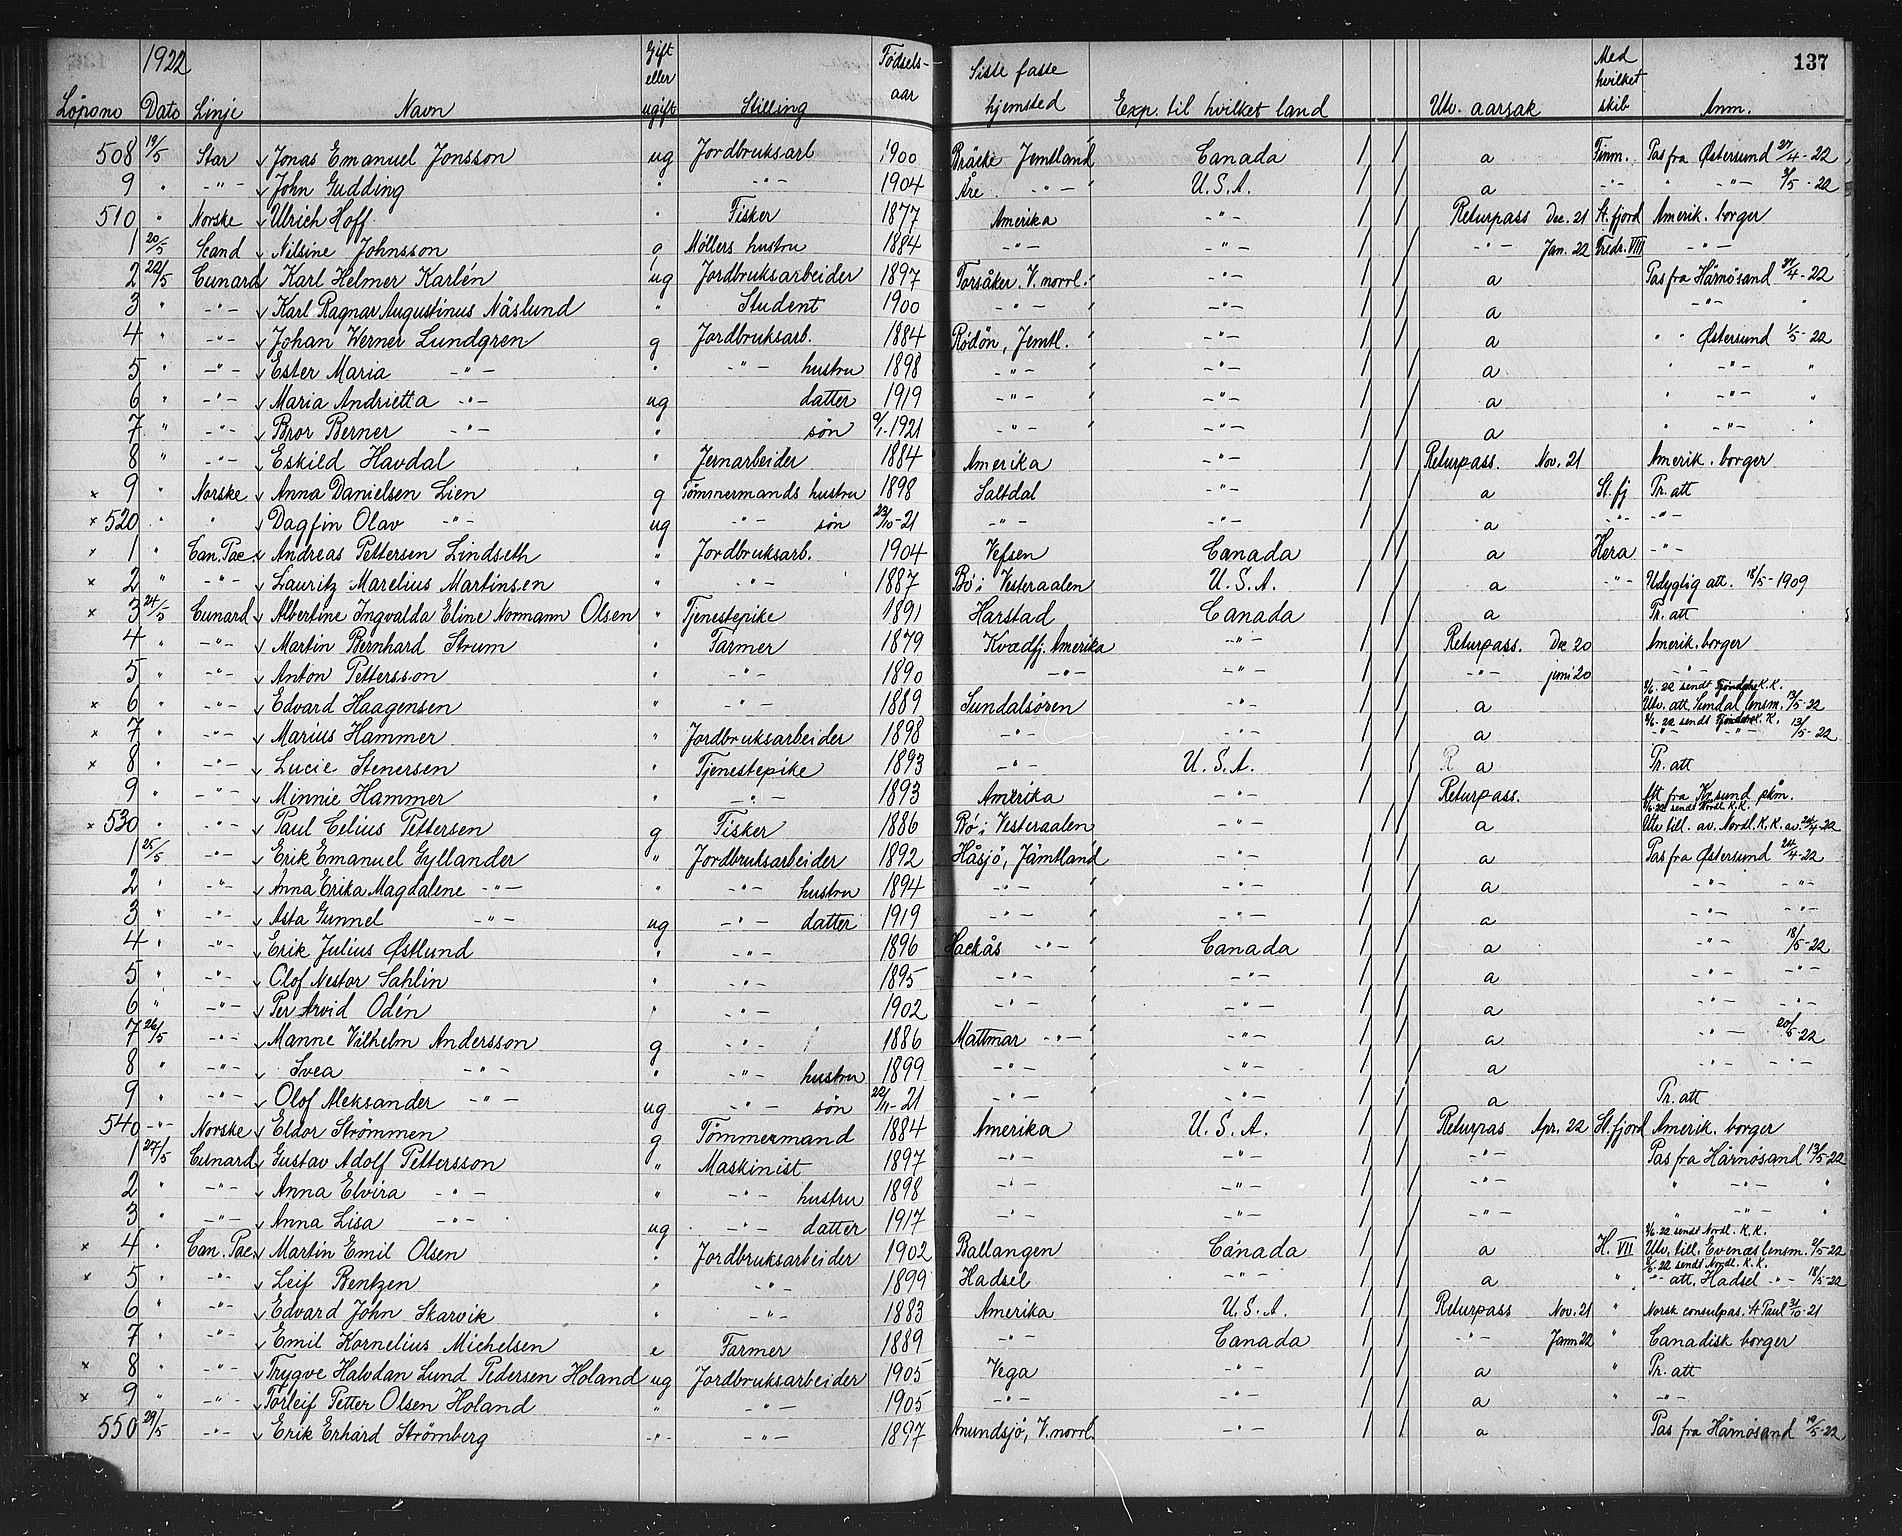 137
1922
Löpeno Dato Linje Navn Gift eller ugift Stilling Fødsels-aar Siste faste hjemsted Exp. til hvilket land Utv. aarsak Med hvilket skib Anm.
508 19/5 Star Jonas Emanuel Jonsson ug Jordbruksarb 1900 Bräcke Jemtland Canada a Finm. Pas fra Østersund 27/4-22
9 " -"- John Gudding " -"- 1904 Åre -"- U.S.A. a -"- " -"- 3/5-22
510 " Norske Ulrich Hoff " Fisker 1877 Amerika -"- Returpass Dec. 21 St.fjord Amerik. borger
1 20/5 Scand Nilsine Johnsson g Møllers hustru 1884 -"- -"- -"- Jan. 22 Fredr. VIII -"-
2 22/5 Cunard Karl Helmer Karlén ug Jordbruksarbeider 1897 Torsåker. V. norrl. -"- a Pas fra Härnösand 27/4-22
3 " -"- Karl Ragnar Augustinus Näslund " Student 1900 -"- -"- a -"- "
4 " -"- Johan Werner Lundgren g Jordbruksarb. 1884 Rödön, Jemtl. -"- a " " Østersund 1/5-22
5 " -"- Ester Maria -"- " -"- hustru 1898 -"- -"- a " -"- "
6 " -"- Maria Andrietta -"- ug datter 1919 -"- -"- a " -"- "
7 " -"- Bror Berner -"- " søn 9/1-1921 -"- -"- a " -"- "
8 " -"- Eskild Havdal " Jernarbeider 1884 Amerika -"- Returpass. Nov. 21 Amerik. borger
× 9 " Norske Anna Danielsen Lien g Tømmermands hustru 1898 Saltdal -"- a St. fj Pr. att
× 520 " " Dagfin Olav -"- ug -"- søn 23/10-21 -"- -"- a -"- -"-
× 1 " Can. Pac. Andreas Pettersen Lindseth " Jordbruksarb. 1904 Vefsen Canada a Hera -"-
× 2 " -"- Lauritz Marelius Martinsen " -"- 1887 Bö i Vesteraalen U.S.A. a -"- Udygtig att. 18/5-1909
× 3 24/5 Cunard Albertine Ingvalda Eline Normann Olsen " Tjenestepike 1891 Harstad Canada a Pr. att
4 " -"- Martin Bernhard Strum " Farmer 1879 Kvædfj. Amerika -"- Returpass. Dec 20 Amerik. borger
5 " -"- Anton Pettersson " -"- 1890 -"- -"- -"- juni 20 -"-
× 6 " -"- Edvard Haagensen " -"- 1889 Sundalsören -"- a Utv. att. Sundal lensm. 13/5-22
× 7 " -"- Marius Hammer " Jordbruksarbeider 1898 -"- -"- a -"- -"- 13/5-22
× 8 " -"- Lucie Stenersen " Tjenestepike 1893 -"- U.S.A. R a Pr. att
9 " -"- Minnie Hammer " -"- 1893 Amerika -"- Returpass. Att fra Kr.sund pkm.
× 530 " -"- Paul Celius Pettersen g Fisker 1886 Bö i Vesteraalen -"- a 2/6-22 sendt Nordl. K.K. Utv till. av. Nordl. K.K. av. 24/4-22
1 25/5 -"- Erik Emanuel Gyllander " Jordbruksarbeider 1892 Håsjö, Jämtland -"- a Pas fra Østersund 24/4-22
2 " -"- Anna Erika Magdalene -"- " -"- hustru 1894 -"- -"- a -"- -"-
3 " -"- Asta Gunnel -"- ug -"- datter 1919 -"- -"- a -"- -"-
4 " -"- Erik Julius Østlund " -"- 1896 Hackås -"- Canada a -"- 18/5-22
5 " -"- Olof Nestor Sahlin " -"- 1895 -"- -"- a -"- -"-
6 " -"- Per Arvid Odén " -"- 1902 -"- -"- a -"- -"-
7 26/5 -"- Manne Vilhelm Andersson g -"- 1886 Mattmar -"- -"- a -"- 20/5-22
8 " -"- Svea -"- " -"- hustru 1899 -"- -"- a -"- -"-
9 " -"- Olof Aleksander -"- ug -"- søn 22/11-21 -"- -"- a Pr. att
540 -"- Norske Eldor Strömmen g Tømmermand 1884 Amerika U.S.A. Returpas Apr. 22 St.fjord Amerik. borger
1 27/5 Cunard Gustav Adolf Pettersson " Maskinist 1897 -"- -"- -"- Pas fra Härnösand 13/5-22
2 " -"- Anna Elvira -"- " -"- hustru 1898 -"- -"- -"- " -"- "
3 " -"- Anna Lisa -"- ug -"- datter 1917 -"- -"- -"- " -"- "
× 4 " Can. Pac. Martin Emil Olsen " Jordbruksarbeider 1902 Ballangen Canada a H. VII 2/6-22 sendt Nordl. K.K. Utv. till. Evenæs lensm. 2/5-22
× 5 " -"- Leif Bentzen " -"- 1899 Hadsel -"- a " 2/6-22 sendt Nordl. K.K. -"- att. Hadsel -"- 18/5-22
6 " -"- Edvard John Skarvik " " 1883 Amerika U.S.A. Returpass Nov. 21 " Norsk consulpas. St Paul 31/10-21
7 " -"- Emil Kornelius Michelsen e Farmer 1889 -"- Canada -"- Jann. 22 " Canadisk borger
× 8 " -"- Trygve Halvdan Lund Pedersen Holand ug Jordbruksarbeider 1905 Vega -"- a " Pr. att
× 9 " -"- Torleif Petter Olsen Holand " -"- 1905 -"- -"- a " -"-
550 29/5 -"- Erik Erhard Strömberg -"- -"- 1897 Anundsjö, V. norrl. -"- a Pas fra Härnösand 19/5-22